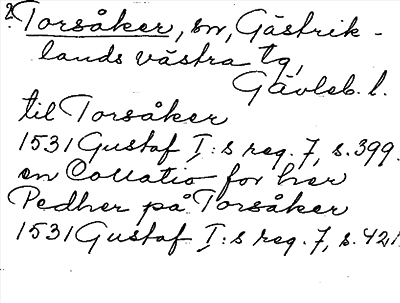 2. Torsåker, sn, Gästrik-
lands västra tg,
Gävleb. l.
til Torsåker
1531 Gustaf I:s reg. 7, s. 399.
en Collatio for her
Pedher på Torsåker
1531 Gustaf I:s reg. 7, s. 421.